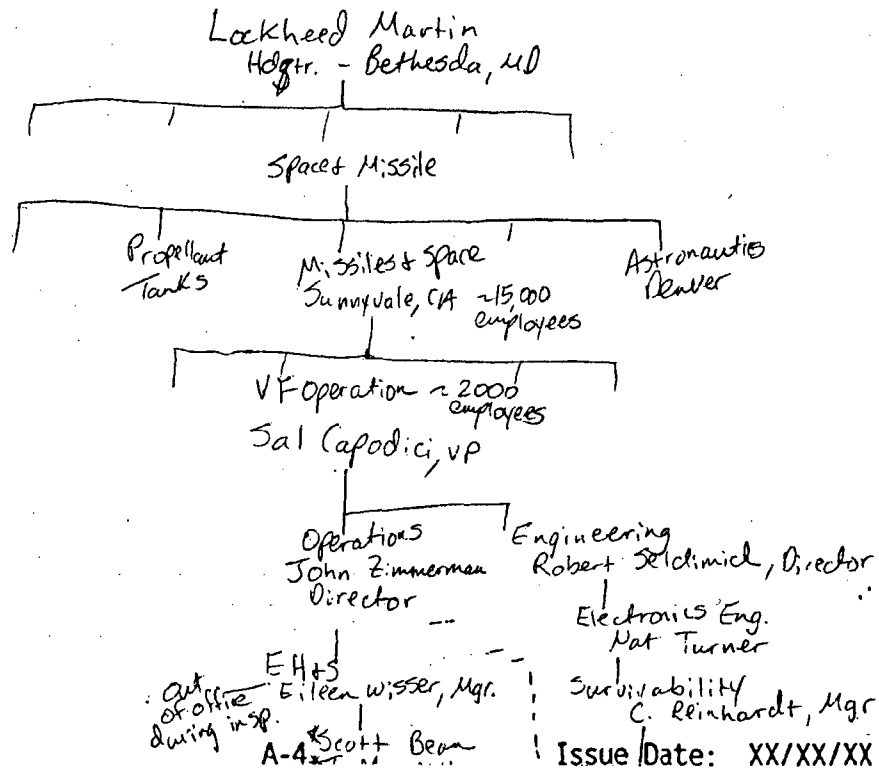 Lockheed Martin
Hdqtr. - Bethesda, MD
Space & Missile
Propellant
Tanks
Missiles & Space
Sunnyvale, CA ~15,000
employees
Astronautics
Denver
VF Operation ~ 2000
employees
Sal Capodici, VP
Operations
John Zimmerman
Director
Engineering
Robert Director
Electronics Eng.
Nat Turner
EH&S
Eileen Wisser, Mgr.
out
of office
during insp.
Survivability
C. Reinhardt, Mgr
*Scott Bean
A-4
Issue Date: XX/XX/XX